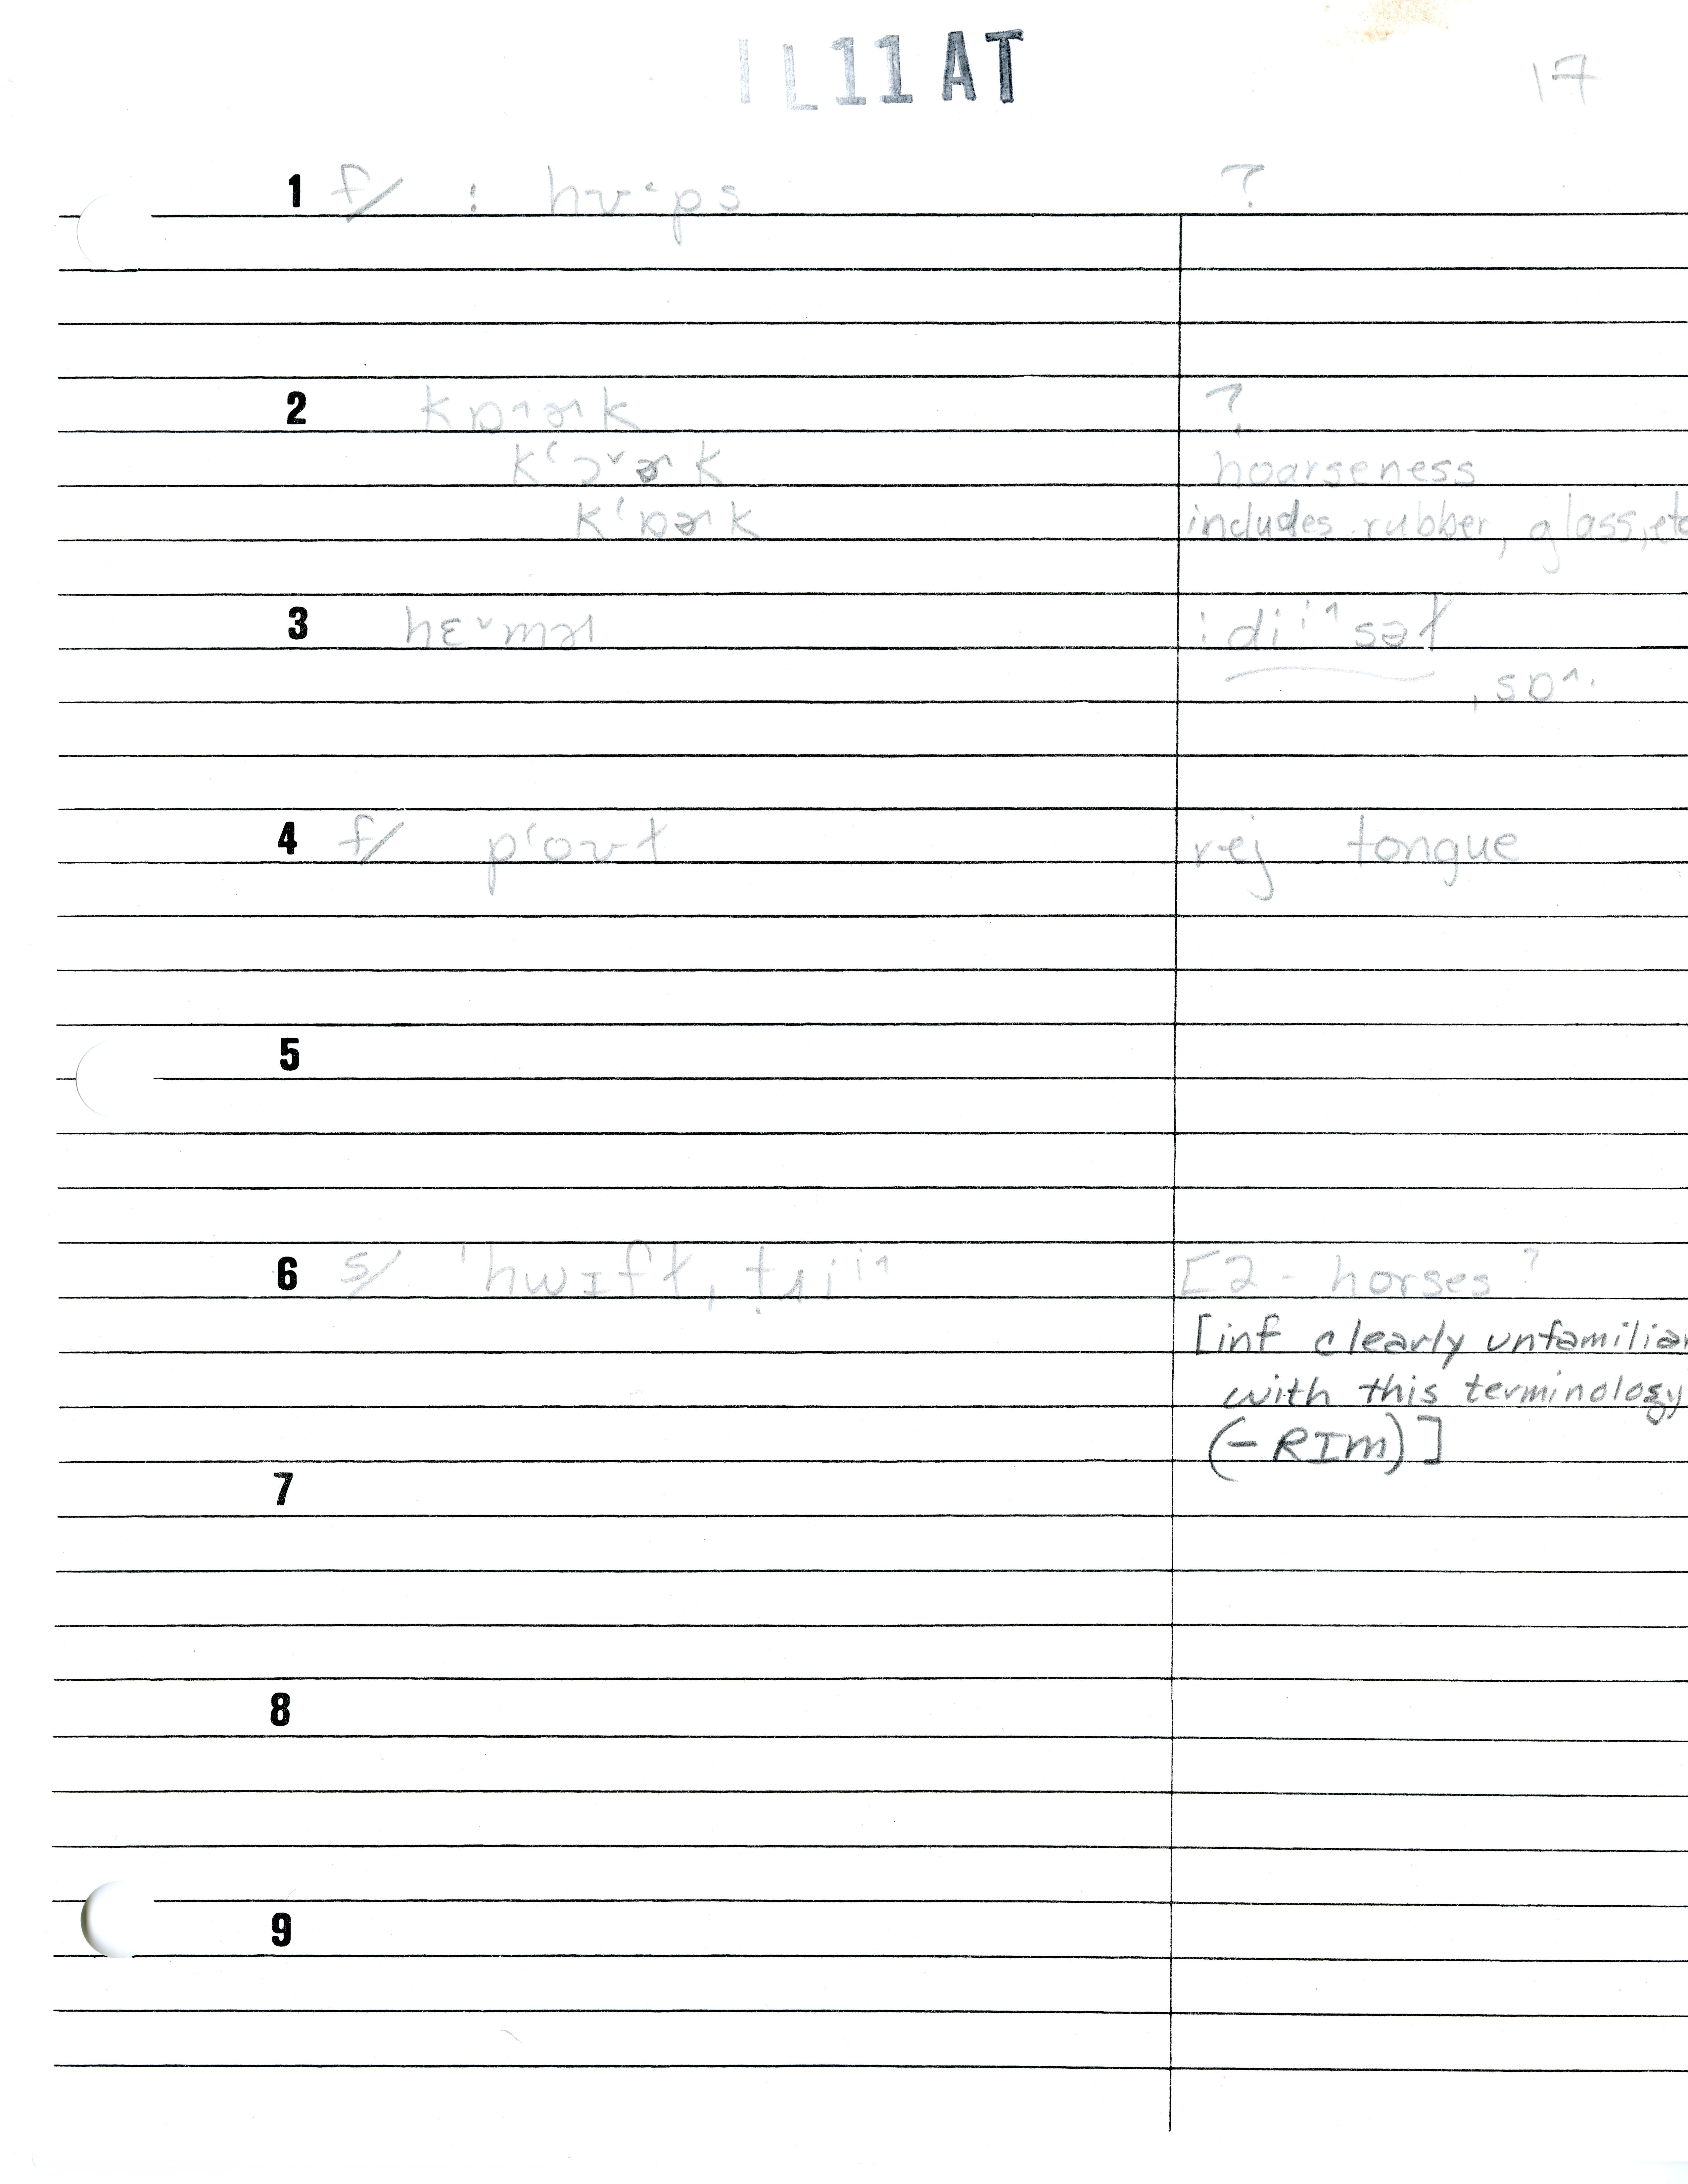 IL11AT
17
1 f/ : hʊ˂ps ?
2 kɒ˄ɚk ?
k‘ɔ˅ɚk hoarseness
k‘ɒɚk includes rubber, glass, etc
3 hɛ˅mɚ : di
4 f/ p‘oʊt rej tongue
5
6 s/ [2 - horses ?
[inf clearly unfamiliar
with this terminology
(-RIM)]
7
8
9